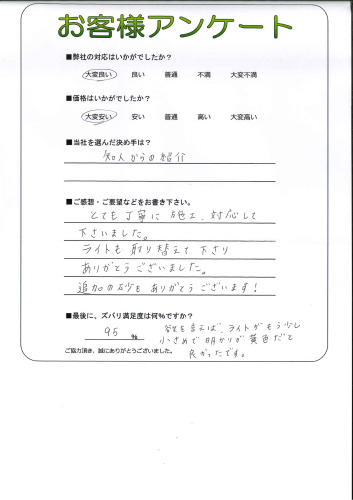 お客様アンケート
■弊社の対応はいかがでしたか？
大変良い 良い 普通 不満 大変不満
■価格はいかがでしたか？
大変安い 安い 普通 高い 大変高い
■当社を選んだ決め手は？
知人からの紹介
■ご感想・ご要望などをお書き下さい。
とても丁寧に施工、対応して
下さいました。
ライトも取り替えて下さり
ありがとうございました。
追加の砂もありがとうございます！
■最後に、ズバリ満足度は何％ですか？
95 %
欲を言えば、ライトがもう少し
小さめで明かりが黄色だと
良かったです。
ご協力頂き、誠にありがとうございました。